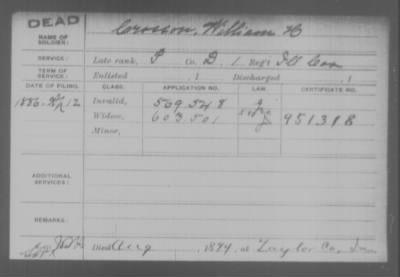 DEAD
NAME OF SOLDIER: Crosson, William H
SERVICE: Late rank, P Co. D, 1 Reg't Cav
TERM OF SERVICE: Enlisted , 1 Discharged , 1
DATE OF FILING. CLASS. APPLICATION NO. LAW. CERTIFICATE NO.
1886 12 Invalid, 569.548
Widow, 603.501 951318
Minor,
ADDITIONAL SERVICES:
REMARKS:
Died Aug , 1894, at Taylor Co,